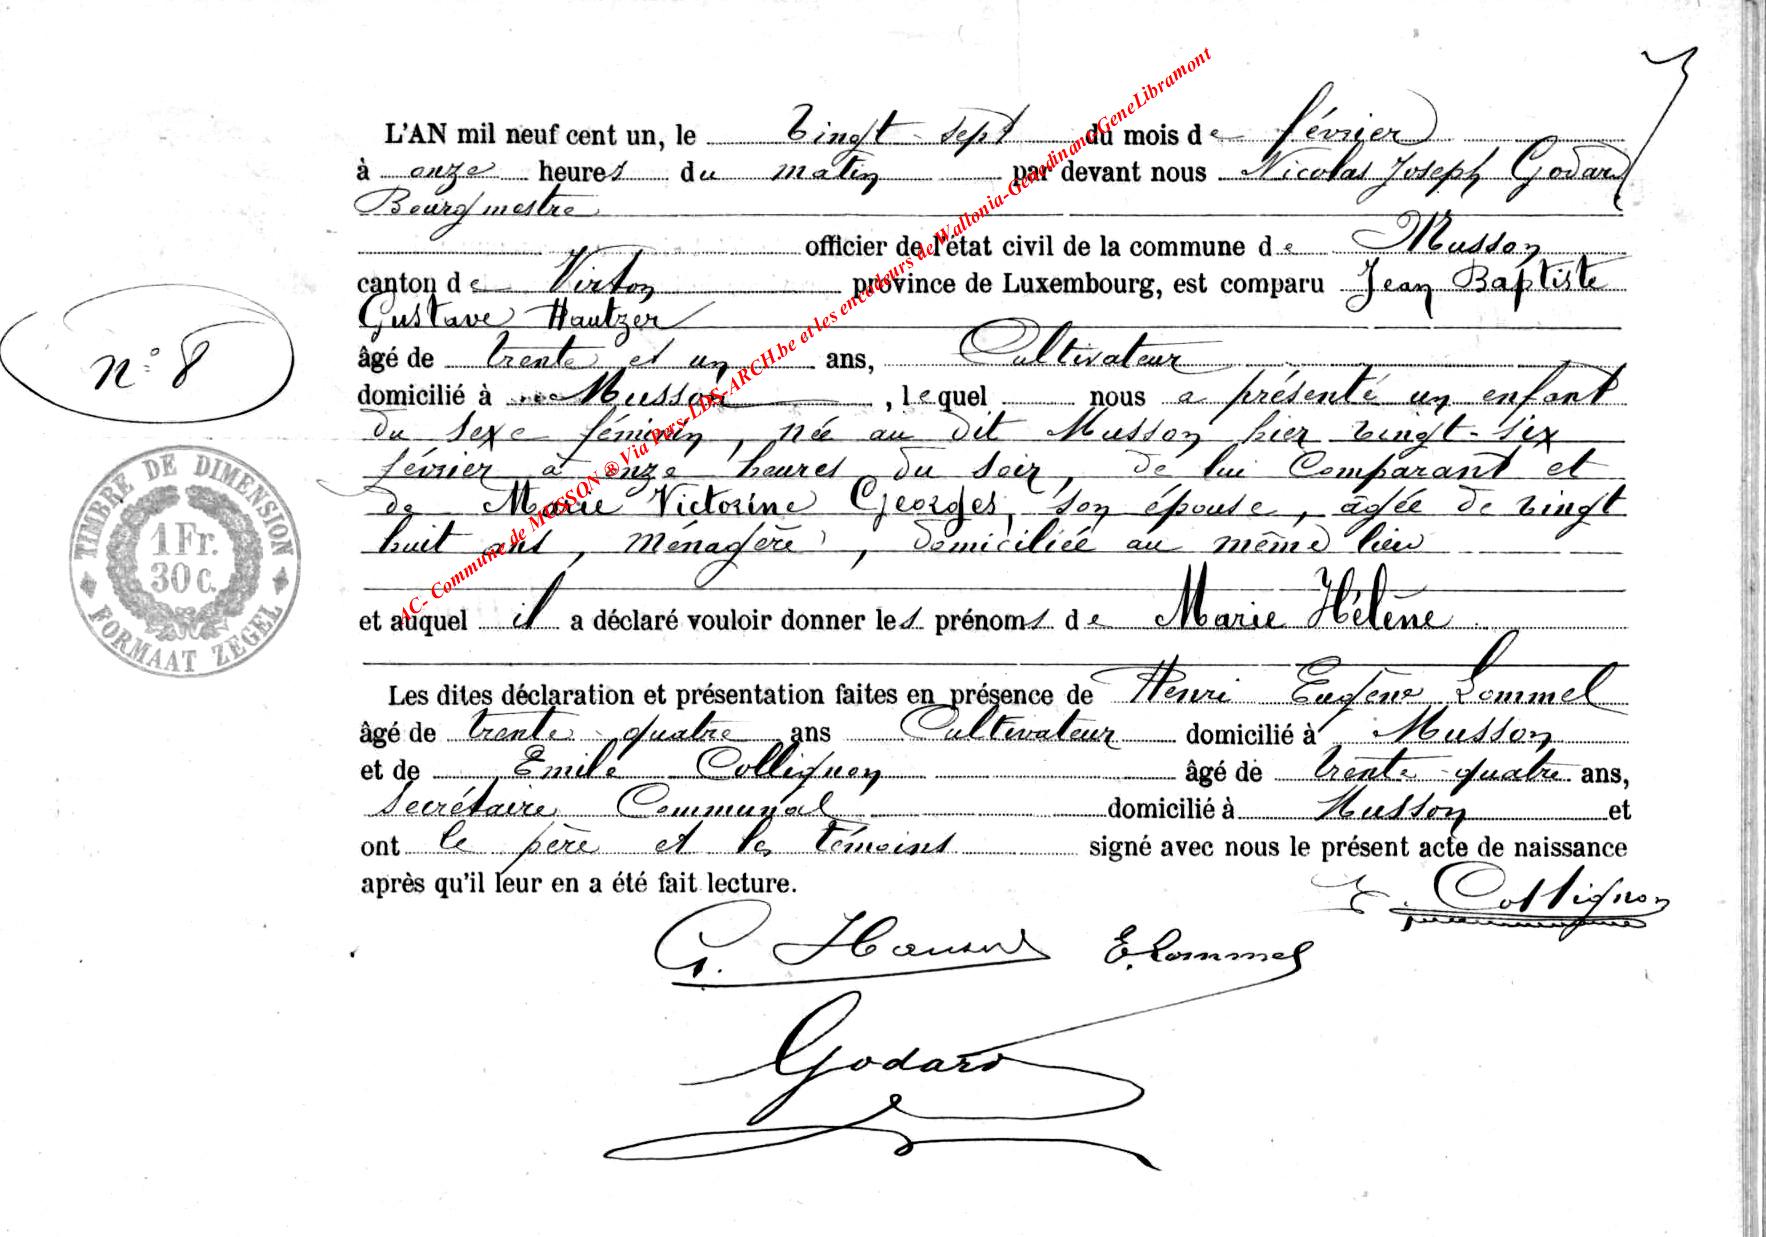 L'AN mil neuf cent un, le vingt-sept du mois de février
à onze heures du matin par devant nous Nicolas Joseph Godard
Bourgmestre
officier de l'état civil de la commune de Musson
canton de Virton province de Luxembourg, est comparu Jean Baptiste
Gustave Hautzer
âgé de trente et un ans, Cultivateur
domicilié à Musson, lequel nous a présenté un enfant
du sexe féminin, née au dit Musson hier vingt-six
février à onze heures du soir, de lui Comparant et
de Marie Victorine Georges, son épouse, âgée de vingt
huit ans, Ménagère, domiciliée au même lieu
et auquel il a déclaré vouloir donner les prénoms de Marie Hélène
Les dites déclaration et présentation faites en présence de Henri Eugène Lommel
âgé de trente-quatre ans Cultivateur domicilié à Musson
et de Emile Collignon âgé de trente-quatre ans,
Secrétaire Communal domicilié à Musson et
ont le père et les témoins signé avec nous le présent acte de naissance
après qu'il leur en a été fait lecture.
E. Collignon
G. E. Lommel
Godard
n° 8
TIMBRE DE DIMENSION
1 Fr.
30 c.
FORMAAT ZEGEL
AC- Commune de MUSSON ® Via Pers-LDS-ARCH.be et les encodeurs de Wallonia-Geneodinand GeneLibramont